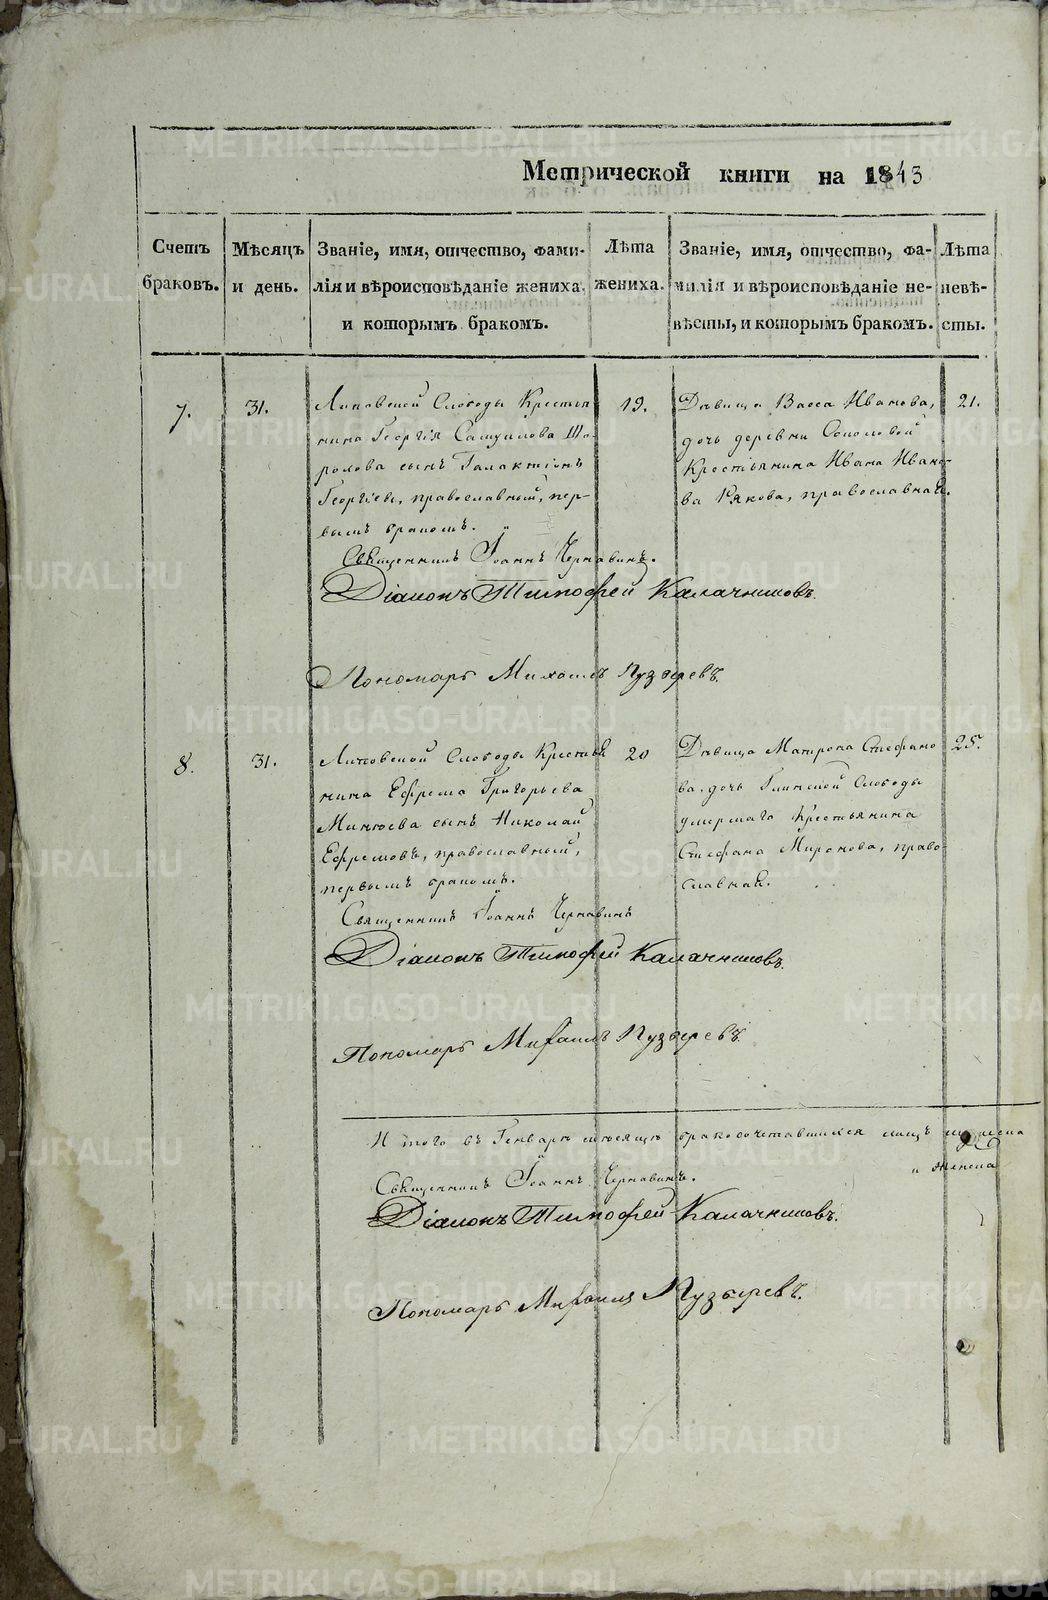 Метрической книги на 1843
Счетъ браковъ.
Мѣсяцъ и день.
Званіе, имя, отчество, фами-
лія и вѣроисповѣданіе жениха,
и которымъ бракомъ.
Лѣта
жениха.
Званіе, имя, отчество, фа-
милія и вѣроисповѣданіе не-
вѣсты, и которымъ бракомъ.
Лѣта
невѣ-
сты.
7.
31.
Липовской Слободы Крестья
нина Георгія Самуилова
сынъ Галактіонъ
Георгіевъ, православный, пер-
вымъ бракомъ.
19.
Дѣвица Васса Иванова,
дочь деревни
Крестьянина Ивана Ивано-
ва православная.
21.
Священникъ Іоаннъ Чернавинъ.
Діаконъ Тимофей Калачниковъ.
Пономарь Михаилъ Пузыревъ.
8.
31.
Липовской Слободы Крестья
нина Ефрема Григорьева
сынъ Николай
Ефремовъ, православный,
первымъ бракомъ.
20
Дѣвица Матрона Стефано
ва, дочь Глинской Слободы
умершаго Крестьянина
Стефана Миронова, право-
славная.
25.
Священникъ Іоаннъ Чернавинъ
Діаконъ Тимофей Калачниковъ.
Пономарь Михаилъ Пузыревъ.
И того въ Генварѣ мѣсяцѣ бракосочетавшихся лицъ
Священникъ Іоаннъ Чернавинъ.
Діаконъ Тимофей Калачниковъ.
Пономарь Михаилъ Пузыревъ.
METRIKI.GASO-URAL.RU